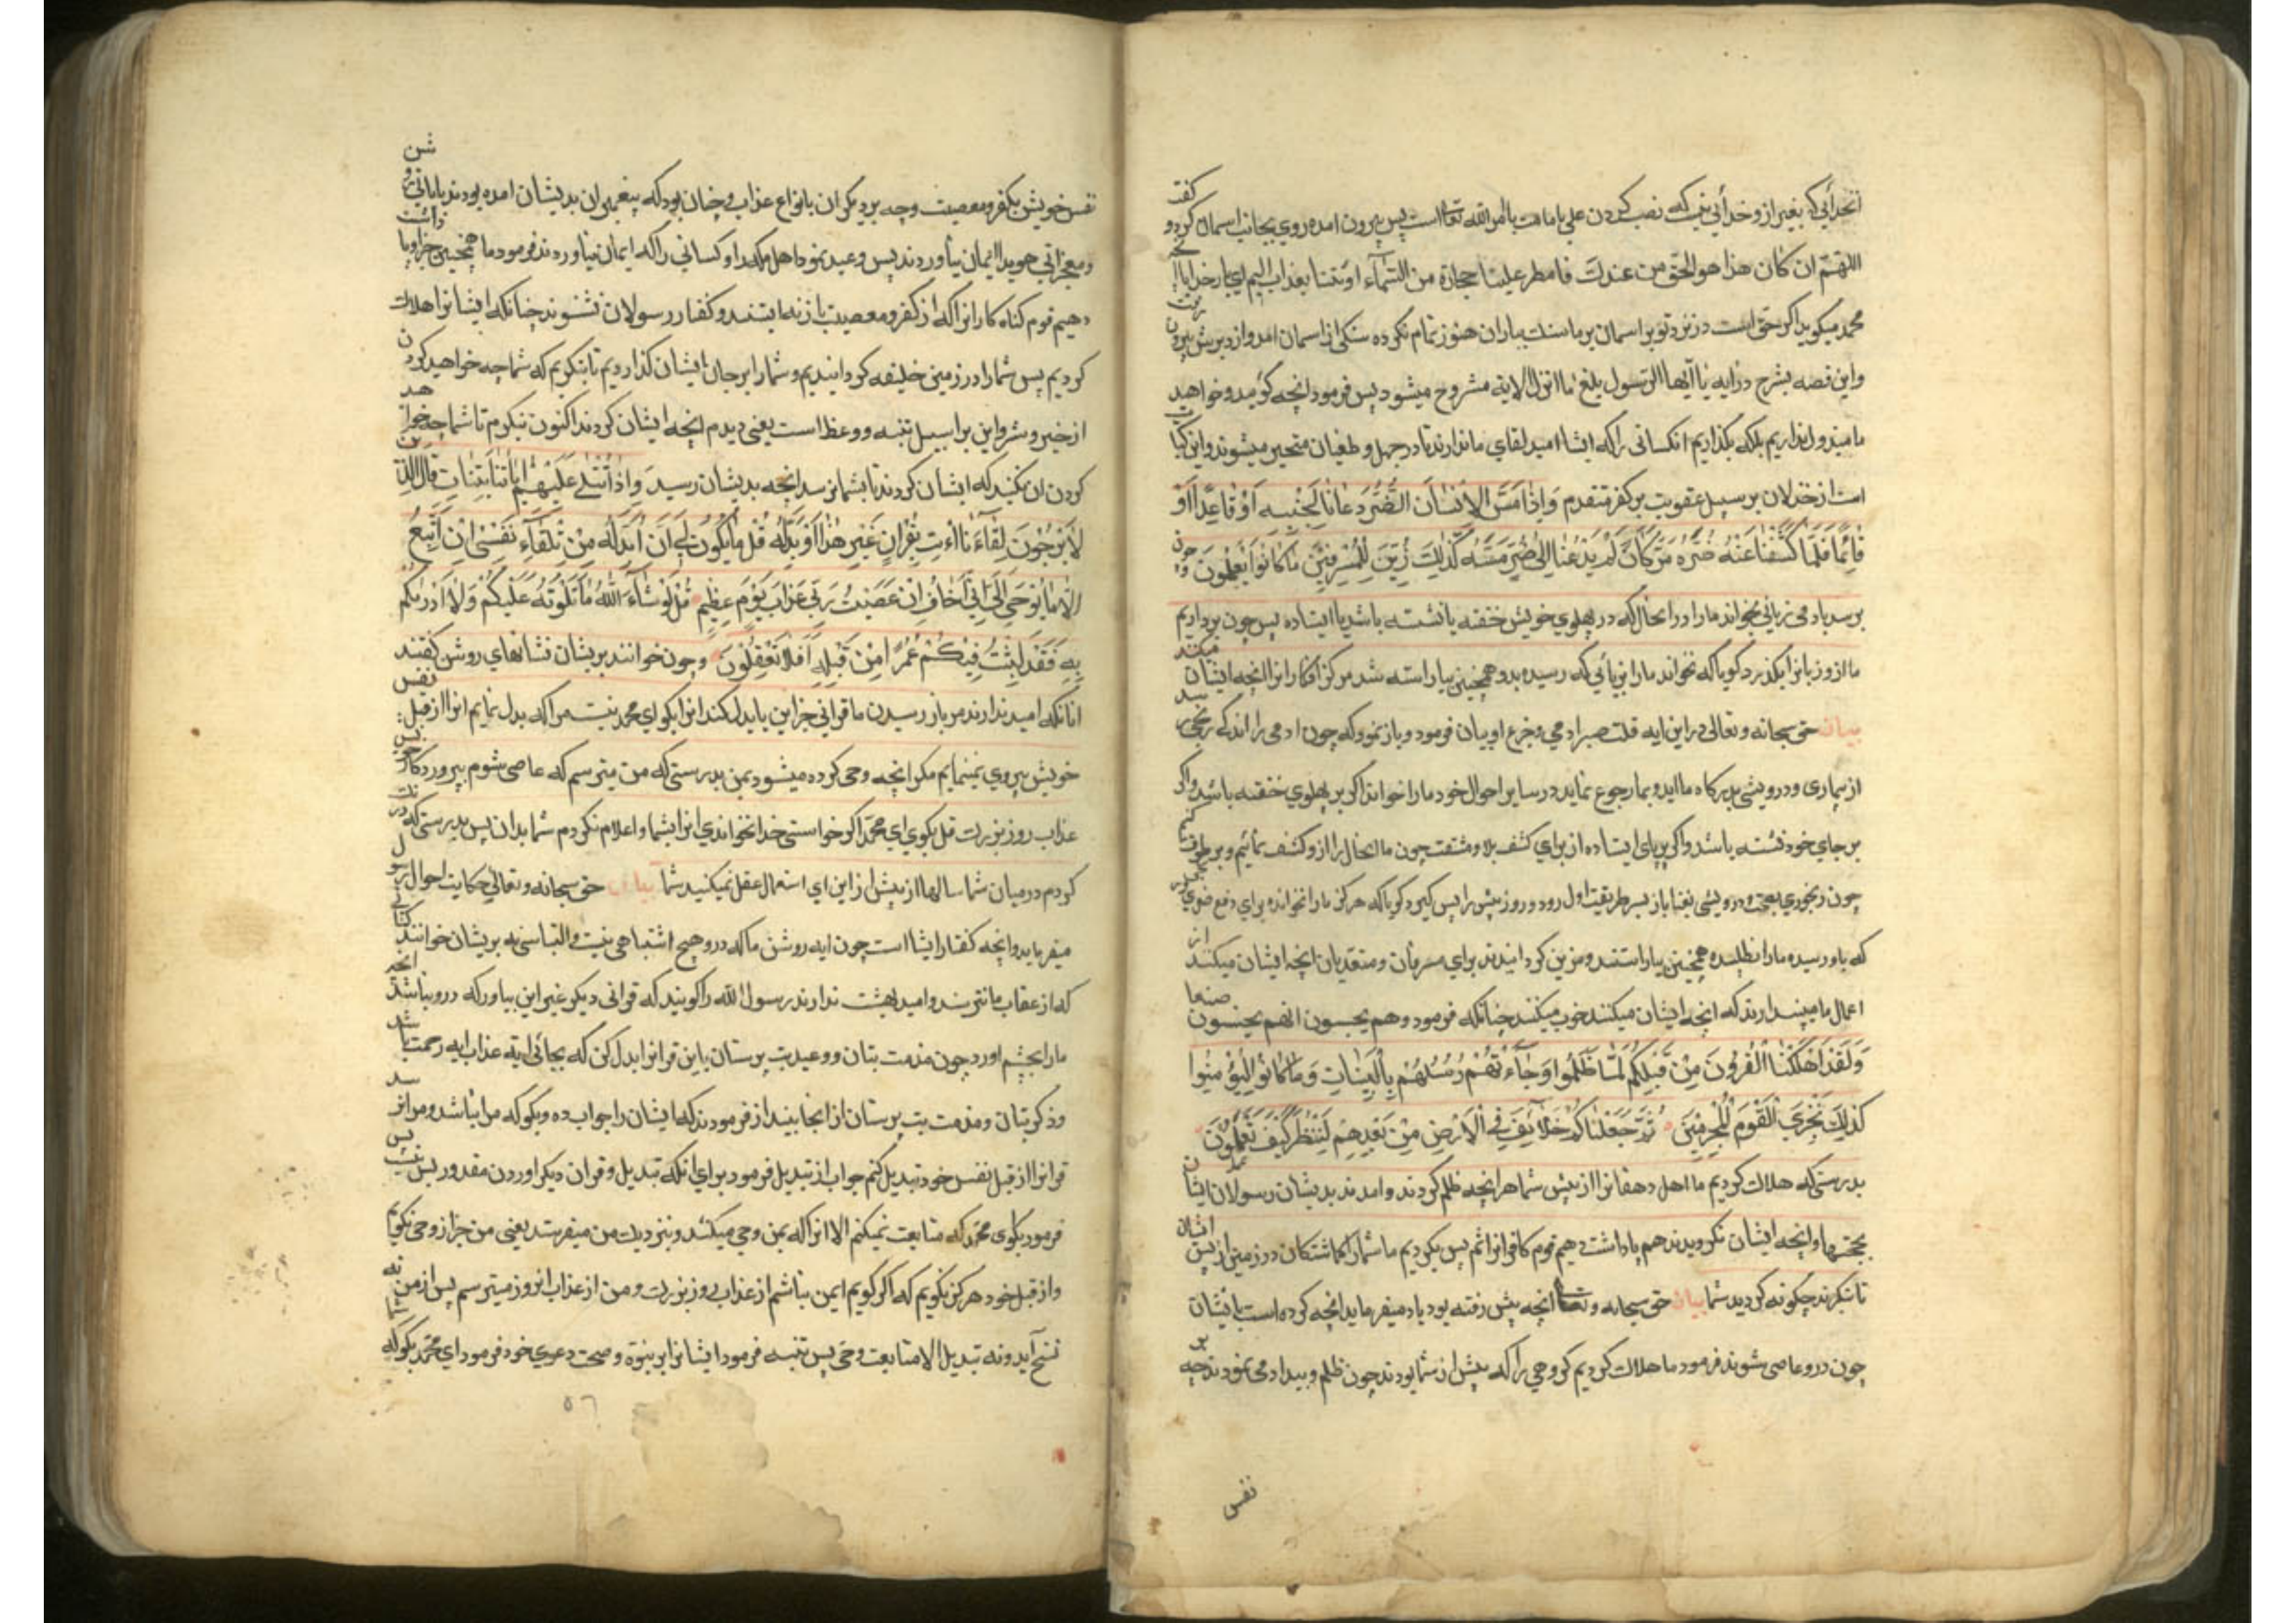 انخدائی که بغیر از و خدائی نیست که نصب کردن علی بامامت بامر الله تعالی است پس بیرون امده روی بجانب اسمان کرد و گفت
اللهم ان کان هذا هو الحق من عندک فامطر علینا حجارة من السماء او ئتنا بعذاب الیم ای بار خدایا انچه
محمد میکوید اکر حق است در نزد تو بر اسمان بر ما سنک بباران هنوز تمام نکرده سنکی از اسمان امد و از دبرش بیرون رفت
واین قصه بشرح در ایه یا ایها الرسول بلغ ما انزل الایة مشروح میشود پس فرمود انچه کویند و خواهند
ما مبذول نداریم بلکه بکذاریم انکسانی را که ایشان امید لقای ما ندارند تا در جهل و طغیان متحیر میشوند و این کنایت
است از خذلان بر سبیل عقوبت بر کفر متقدم وَاِذَا مَسَّ الْاِنْسَانَ الضُّرُّ دَعَانَا لِجَنْبِهِ اَوْ قَاعِدًا اَوْ
قَائِمًا فَلَمَّا کَشَفْنَا عَنْهُ ضُرَّهُ مَرَّ کَاَنْ لَمْ یَدْعُنَا اِلٰی ضُرٍّ مَسَّهُ کَذٰلِکَ زُیِّنَ لِلْمُسْرِفِینَ مَا کَانُوا یَعْمَلُونَ و چون
برسد بادمی زیانی بخواند مارا در انحال که در پهلوی خویش خفته یا نشسته باشد یا ایستاده پس چون برداریم
ما از و زیانرا بکذرد کویا که نخواند مارا بزیانی که رسیده بدو همچنین بیاراسته شد مر کزافکارانرا انچه ایشان میکنند
بیان حق سبحانه و تعالی در این ایه قلت صبر ادمی و جزع او بیان فرمود و باز نمود که چون ادمی را اندک رنجی برسد
از بیماری و درویشی بدرکاه ما اید و بما رجوع نماید در سایر احوال خود مارا خواند اکر بر پهلوی خفته باشد و اکر
بر جای خود نشسته باشد و اکر بر پای ایستاده از برای کشف بلا و مشقت چون ما انحال را از و کشف نمائیم و بر طرف کنیم
چون رنجوری بصحت و درویشی بغنا باز بسر طریقت اول رود و روز پیش را پس کیرد کویا که هرکز مارا نخوانده برای دفع ضرری
که باو رسیده مارا نطلبیده همچنین بیاراستند و مزین کردانیدند برای مسرفان و متعدیان انچه ایشان میکنند از
اعمال ما میپندارند که انچه ایشان میکنند خوب میکنند چنانکه فرمود و هم یحسبون انهم یحسنون صنعا
وَلَقَدْ اَهْلَکْنَا الْقُرُونَ مِنْ قَبْلِکُمْ لَمَّا ظَلَمُوا وَجَاءَتْهُمْ رُسُلُهُمْ بِالْبَیِّنَاتِ وَمَا کَانُوا لِیُؤْمِنُوا
کَذٰلِکَ نَجْزِی الْقَوْمَ الْمُجْرِمِینَ ثُمَّ جَعَلْنَاکُمْ خَلَائِفَ فِی الْاَرْضِ مِنْ بَعْدِهِمْ لِنَنْظُرَ کَیْفَ تَعْمَلُونَ
بدرستی که هلاک کردیم ما اهل دهقانرا از پیش شما هر انچه ظلم کردند و امدند بدیشان رسولان ایشان
بحجتها و انچه ایشان نکرویدند هم پاداشت دهیم قوم کافرانرا ثم پس بکردیم ما شما را کماشتکان در زمین از پس ایشان
تا بنکرند چکونه کردید شما بیان حق سبحانه و تعالی انچه پیش رفته بود یاد میفرماید انچه کرده است با ایشان
چون در و عاصی شوند فرمود ما هلاک کردیم کروهی را که پیش از شما بودند چون ظلم و بیدادی نمودند چه بر
نفس
نفس خویش بکفر و معصیت و چه بر دیکران بانواع عذاب و چنان بود که پیغمبران بدیشان امده بودند با ایاتی روشن
و معجزاتی هویدا ایمان نیاوردند پس وعید نمود اهل مکه را و کسانی را که ایمان نیاوردند فرمود ما همچنین جزا و پاداشت
دهیم قوم کناه کارانرا که از کفر و معصیت باز نه ایستند و کفتار رسولان نشنوند چنانکه ایشانرا هلاک
کردیم پس شما را در زمین خلیفه کردانیدیم و شما را بر جای ایشان کذاردیم تا بنکریم که شما چه خواهید کردن
از خیر و شر و این بر سبیل تنبیه و وعظ است یعنی دیدم انچه ایشان کردند اکنون بنکرم تا شما چه خواهید
کردن ان نکنید که ایشان کردند تا بشما نرسد انچه بدیشان رسید وَاِذَا تُتْلٰی عَلَیْهِمْ اٰیَاتُنَا بَیِّنَاتٍ قَالَ الَّذِینَ
لَا یَرْجُونَ لِقَاءَنَا ائْتِ بِقُرْاٰنٍ غَیْرِ هٰذَا اَوْ بَدِّلْهُ قُلْ مَا یَکُونُ لِی اَنْ اُبَدِّلَهُ مِنْ تِلْقَاءِ نَفْسِی اِنْ اَتَّبِعُ
اِلَّا مَا یُوحٰی اِلَیَّ اِنِّی اَخَافُ اِنْ عَصَیْتُ رَبِّی عَذَابَ یَوْمٍ عَظِیمٍ قُلْ لَوْ شَاءَ اللّٰهُ مَا تَلَوْتُهُ عَلَیْکُمْ وَلَا اَدْرٰیکُمْ
بِهِ فَقَدْ لَبِثْتُ فِیکُمْ عُمُرًا مِنْ قَبْلِهِ اَفَلَا تَعْقِلُونَ و چون خوانند بریشان نشانهای روشن کفتند
انانکه امید ندارند مر باز رسیدن ما قرانی جز این یا بدل کند انرا بکو ای محمد نیست مرا که بدل نمایم انرا از قبل نفس
خویش پیروی نمینمایم مکر انچه وحی کرده میشود بمن بدرستی که من میترسم که عاصی شوم پروردکار خویش
عذاب روز بزرک قل بکوی ای محمد اکر خواستی خدا نخواندی انرا بشما و اعلام نکردم شما بدان پس بدرستی که درنک
کردم در میان شما سالها از پیش از این ای استعمال عقل نمیکنید شما بیان حق سبحانه و تعالی حکایت احوال رسول
میفرماید و انچه کفتار ایشان است چون ایه روشن ما که در و هیچ اشتباهی نیست و التباسی نه بریشان خوانند کسانی
که از عقاب ما نترسند و امید بهشت ندارند رسول الله را کویند که قرانی دیکر غیر این بیاور که در و نباشد انچه
مارا بخشم اورد چون مذمت بتان و وعید بت پرستان یا این قرانرا بدل کن که بجائی ایه عذاب ایه رحمت باشد
و ذکر بتان و مذمت بت پرستان از انجا بینداز فرمودند که ایشان را جواب ده و بکو که مرا نباشد و مرا نرسد
قرانرا از قبل نفس خود تبدیل کنم جواب از تبدیل فرمود برای انکه تبدیل و قران دیکر اوردن مقدور بس نیست پس
فرمود بکوی محمد که متابعت نمیکنم الا انرا که بمن وحی میکنند و بنزدیک من میفرستد یعنی من جز از وحی نکویم
و از قبل خود هرکز نکویم که اکر کویم ایمن نباشم از عذاب روز بزرک و من از عذاب انروز میترسم پس از من نه
نسخ آید و نه تبدیل الا متابعت وحی پس تنبیه فرمود ایشانرا بر نبوة و صحت دعوی خود فرمود ای محمد بکو که
۵۶